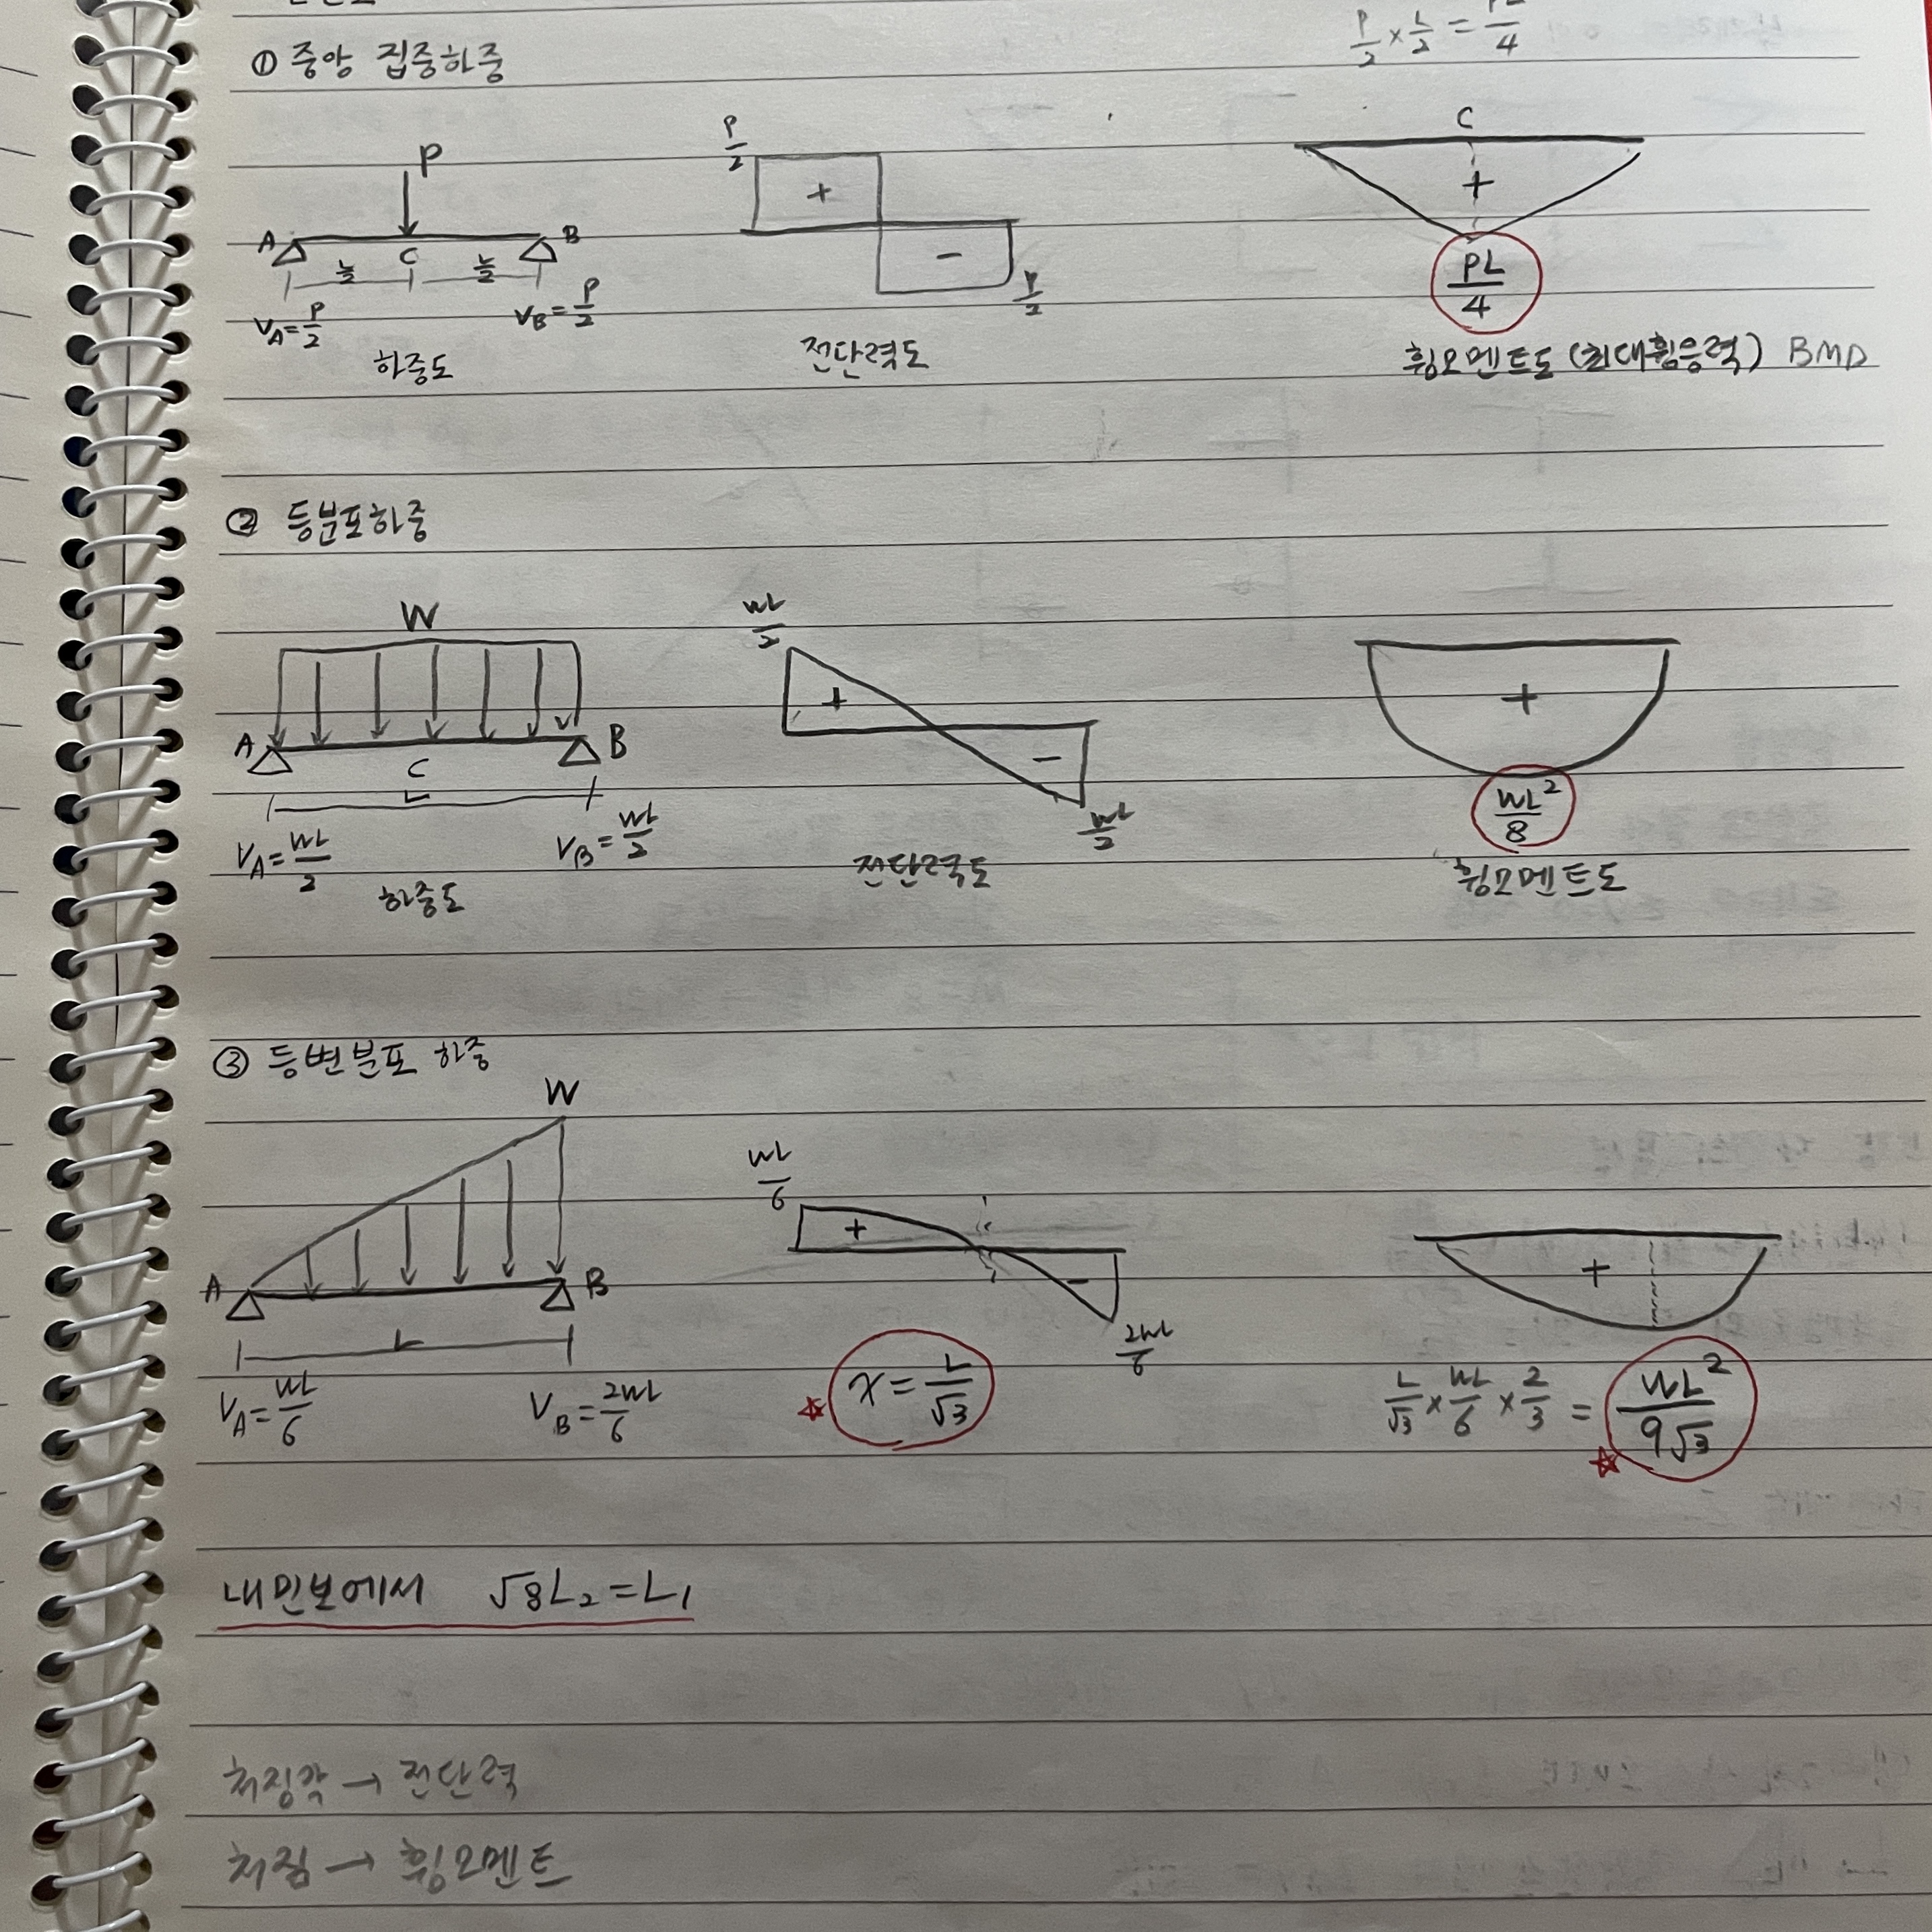 P/2 × L/2 = PL/4
① 중앙 집중하중
P
A C B
L/2 L/2
V_A = P/2 V_B = P/2
하중도
P/2
+
−
P/2
전단력도
C
+
PL/4
휨모멘트도 (최대휨응력) BMD
② 등분포하중
W
A B
C
L
V_A = WL/2 V_B = WL/2
하중도
WL/2
+
−
WL/2
전단력도
+
WL²/8
휨모멘트도
③ 등변분포 하중
W
A B
L
V_A = WL/6 V_B = 2WL/6
WL/6
+
−
2WL/6
x = L/√3
+
L/√3 × WL/6 × 2/3 = WL²/9√3
내민보에서 √8L₂ = L₁
처짐각 → 전단력
처짐 → 휨모멘트